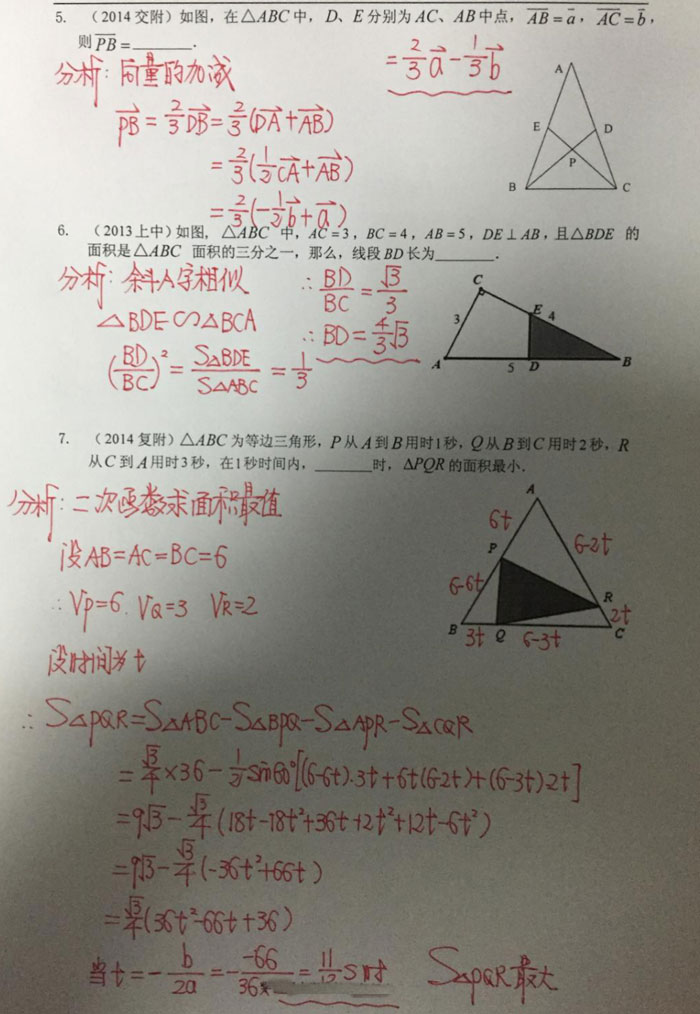 5. （2014 交附）如图，在△ABC 中，D、E 分别为 AC、AB 中点，AB = a，AC = b，
则 PB = ______.
分析：向量的加减
PB = 2/3 DB = 2/3 (DA + AB)
= 2/3 (1/2 CA + AB)
= 2/3 (-1/2 b + a)
= 2/3 a - 1/3 b
A
E
D
P
B
C
6. （2013 上中）如图，△ABC 中，AC = 3，BC = 4，AB = 5，DE ⊥ AB，且△BDE 的
面积是△ABC 面积的三分之一，那么，线段 BD 长为______.
分析：斜A字相似
△BDE∽△BCA
(BD/BC)² = S△BDE/S△ABC = 1/3
∴ BD/BC = √3/3
∴ BD = 4/3 √3
C
3
E
4
A
5
D
B
7. （2014 复附）△ABC 为等边三角形，P 从 A 到 B 用时 1 秒，Q 从 B 到 C 用时 2 秒，R
从 C 到 A 用时 3 秒，在 1 秒时间内，______时，△PQR 的面积最小.
分析：二次函数求面积最值
设 AB=AC=BC=6
∴ Vp=6. VQ=3 VR=2
设时间为 t
A
6t
6-2t
P
6-6t
R
2t
B
3t
Q
6-3t
C
∴ S△PQR=S△ABC-S△BPQ-S△APR-S△CQR
= √3/4 ×36 - 1/2 sin60°[(6-6t)·3t+6t(6-2t)+(6-3t)2t]
= 9√3 - √3/4 (18t-18t²+36t+2t²+12t-6t²)
= 9√3 - √3/4 (-36t²+66t)
= √3/4 (36t²-66t+36)
当 t = - b/2a = - -66/36× = 11/12 s 时 S△PQR 最大